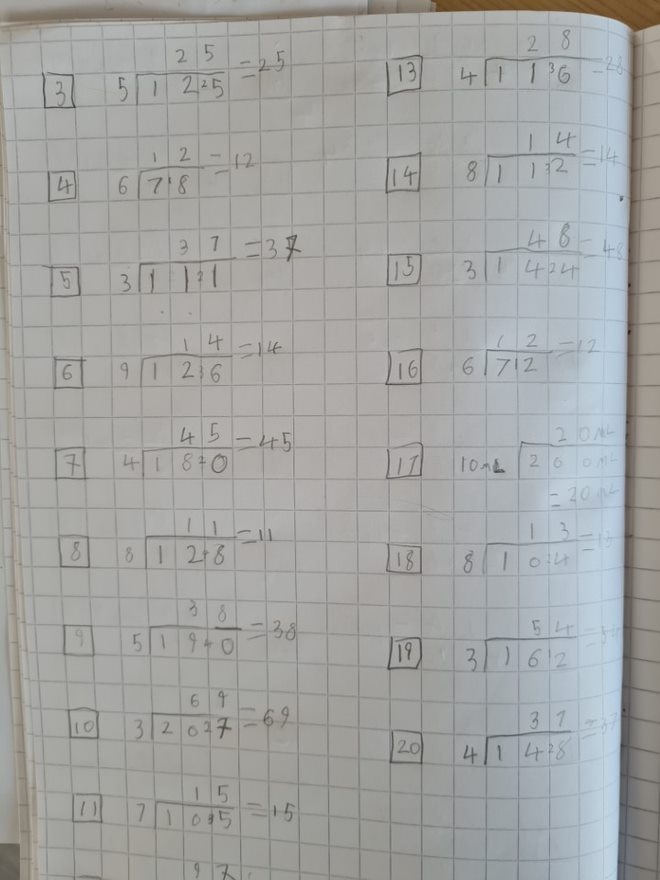 2 5
3 5 1 2 2 5 = 25
1 2
4 6 7 1 8 = 12
3 7
5 3 1 1 2 1 = 37
1 4
6 9 1 2 3 6 = 14
4 5
7 4 1 8 2 0 = 45
1 1
8 8 1 2 8 = 11
3 8
9 5 1 9 4 0 = 38
6 9
10 3 2 0 2 7 = 69
1 5
11 7 1 0 3 5 = 15
9 7
2 8
13 4 1 1 3 6 = 28
1 4
14 8 1 1 3 2 = 14
4 8
15 3 1 4 2 4 = 48
1 2
16 6 7 1 2 = 12
2 0 mL
17 10 mL 2 0 0 mL
= 20 mL
1 3
18 8 1 0 2 4 = 13
5 4
19 3 1 6 1 2 = 54
3 7
20 4 1 4 2 8 = 37